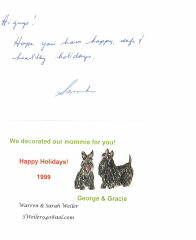 Hi guys!
Hope you have happy, safe &
healthy holidays.
Sarah
We decorated our mommie for you!
Happy Holidays!
1999
George & Gracie
Warren & Sarah Weiler